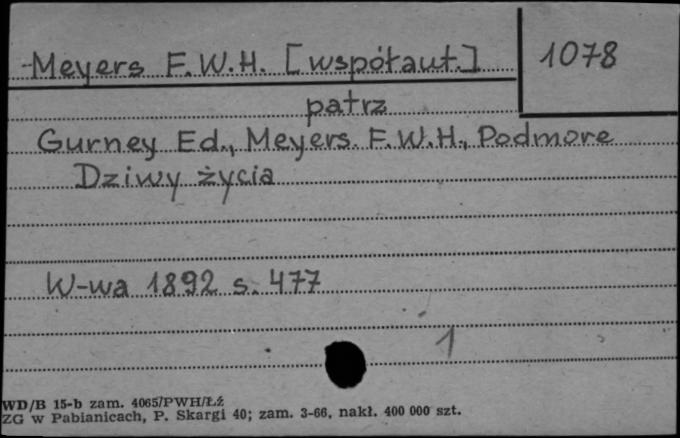 Meyers F.W.H. [współaut.]
1078
patrz
Gurney Ed., Meyers F.W.H., Podmore
Dziwy życia
W-wa 1892 s. 477
1
WD/B 15-b zam. 4065/PWH/Łź
ZG w Pabianicach, P. Skargi 40; zam. 3-66, nakł. 400 000 szt.